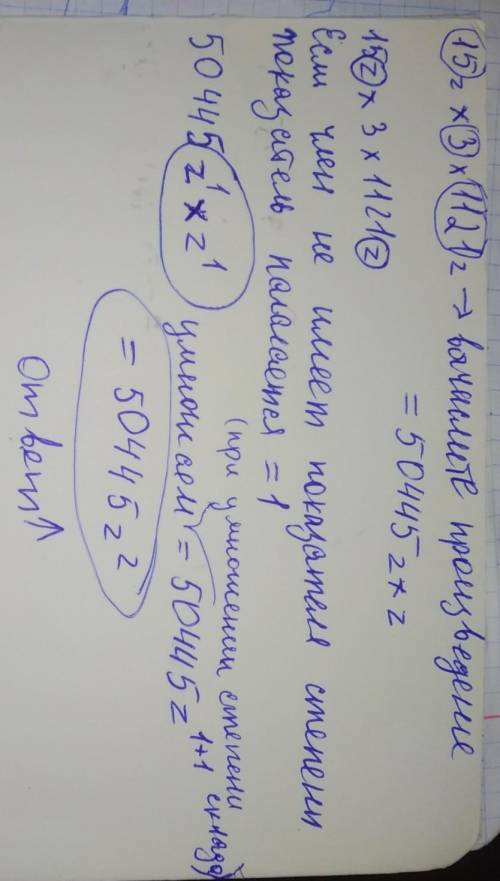 15z × 3 × 1121z → вычислите произведение
= 50445z × z
15z × 3 × 1121z
Если член не имеет показателя степени
показатель полагается = 1
(при умножении степени
50445 z¹ × z¹ умножаем = 50445z¹⁺¹
= 50445z²
Ответ↑